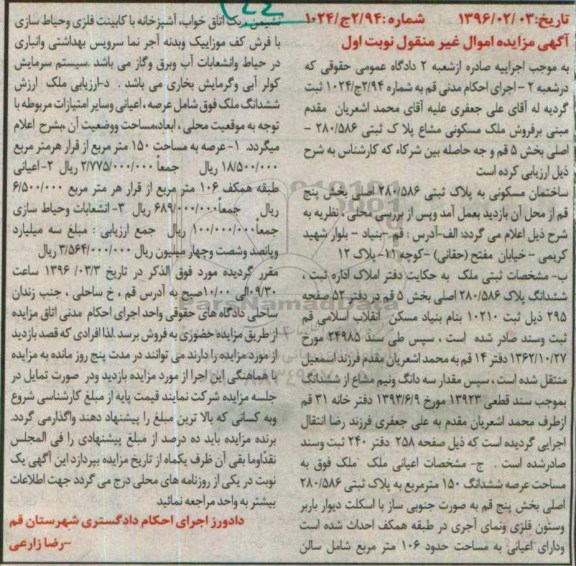 تاریخ:۱۳۹۶/۰۲/۰۳ شماره:۲/۹۴ج/۱۰۲۴
آگهی مزایده اموال غیر منقول نوبت اول
به موجب اجراییه صادره ازشعبه ۲ دادگاه عمومی حقوقی که
درشعبه ۲ - اجرای احکام مدنی قم به شماره ۲/۹۴ج/۱۰۲۴ ثبت
گردیه له آقای علی جعفری علیه آقای محمد اشعریان مقدم
مبنی برفروش ملک مسکونی مشاع پلاک ثبتی ۲۸۰/۵۸۶ -
اصلی بخش ۵ قم و جه حاصله بین شرکاء که کارشناس به شرح
ذیل ارزیابی کرده است
ساختمان مسکونی به پلاک ثبتی ۲۸۰/۵۸۶ اصلی بخش پنج
قم از محل آن بازدید بعمل آمد وپس از بررسی محلی ، نظریه به
شرح ذیل اعلام می گردد: الف-آدرس : قم -بنیاد - بلوار شهید
کریمی - خیابان مفتح (حقانی) -کوچه ۱۱- پلاک ۱۲
ب- مشخصات ثبتی ملک به حکایت دفتر املاک اداره ثبت ،
ششدانگ پلاک ۲۸۰/۵۸۶ اصلی بخش ۵ قم در دفتر ۵۲ صفحه
۲۹۵ ذیل ثبت ۱۰۲۱۰ بنام بنیاد مسکن انقلاب اسلامی قم
ثبت وسند صادر شده است ، سپس طی سند ۲۴۹۸۵ مورخ
۱۳۶۲/۱۰/۲۷ دفتر ۱۴ قم به محمد اشعریان مقدم فرزند اسمعیل
منتقل شده است ، سپس مقدار سه دانگ ونیم مشاع از ششدانگ
بموجب سند قطعی ۱۳۹۲۳ مورخ ۱۳۹۳/۶/۹ دفتر خانه ۳۱ قم
ازطرف محمد اشعریان مقدم به علی جعفری فرزند رضا انتقال
اجرایی گردیده است که ذیل صفحه ۲۵۸ دفتر ۲۴۰ ثبت وسند
صادرشده است . ج- مشخصات اعیانی ملک ملک فوق به
مساحت عرصه ششدانگ ۱۵۰ مترمربع به پلاک ثبتی ۲۸۰/۵۸۶
اصلی بخش پنج قم به صورت جنوبی ساز با اسکلت دیوار باربر
وستون فلزی ونمای آجری در طبقه همکف احداث شده است
ودارای اعیانی به مساحت حدود ۱۰۶ متر مربع شامل سالن
نشیمن ویک اتاق خواب، آشپزخانه با کابینت فلزی وحیاط سازی
با فرش کف موزاییک وبدنه آجر نما سرویس بهداشتی وانباری
در حیاط وانشعابات آب وبرق وگاز می باشد .سیستم سرمایش
کولر آبی وگرمایش بخاری می باشد . د-ارزیابی ملک ارزش
ششدانگ ملک فوق شامل عرصه ، اعیانی وسایر امتیازات مربوطه با
توجه به موقعیت محلی ، ابعاد،مساحت ووضعیت آن ،بشرح اعلام
میگردد. ۱- عرصه به مساحت ۱۵۰ متر مربع از قرار هرمتر مربع
۱۸/۵۰۰/۰۰۰ ریال جمعاً ۲/۷۷۵/۰۰۰/۰۰۰ ریال ۲-اعیانی
طبقه همکف ۱۰۶ متر مربع از قرار هر متر مربع ۶/۵۰۰/۰۰۰
ریال جمعاً ۶۸۹/۰۰۰/۰۰۰ ریال ۳- انشعابات وحیاط سازی
جمعاً ۱۰۰/۰۰۰/۰۰۰ ریال جمع ارزیابی : مبلغ سه میلیارد
وپانصد وشصت وچهار میلیون ریال ۳/۵۶۴/۰۰۰/۰۰۰ ریال
مقرر گردیده مورد فوق الذکر در تاریخ ۱۳۹۶ /۰۳/۳ ساعت
۰۹/۳۰الی ۱۰/۰۰صبح به آدرس قم ، خ ساحلی ، جنب زندان
ساحلی دادگاه های حقوقی واحد اجرای احکام مدنی اتاق مزایده
از طریق مزایده حضوری به فروش برسد .لذا افرادی که قصد بازدید
از مورد مزایده را دارند می توانند در مدت پنج روز مانده به مزایده
با هماهنگی این اجرا از مورد مزایده بازدید ودر صورت تمایل در
جلسه مزایده شرکت نمایند قیمت پایه از مبلغ کارشناسی شروع
وبه کسانی که بالا ترین مبلغ را پیشنهاد دهند واگذارمی گردد.
برنده مزایده باید ده درصد از مبلغ پیشنهادی را فی المجلس
نقداوما بقی آن ظرف یکماه از تاریخ مزایده بپردازد این آگهی یک
نوبت در یکی از روزنامه های محلی درج می گردد جهت اطلاعات
بیشتر به واحد مراجعه نمائید
دادورز اجرای احکام دادگستری شهرستان قم
-رضا زارعی